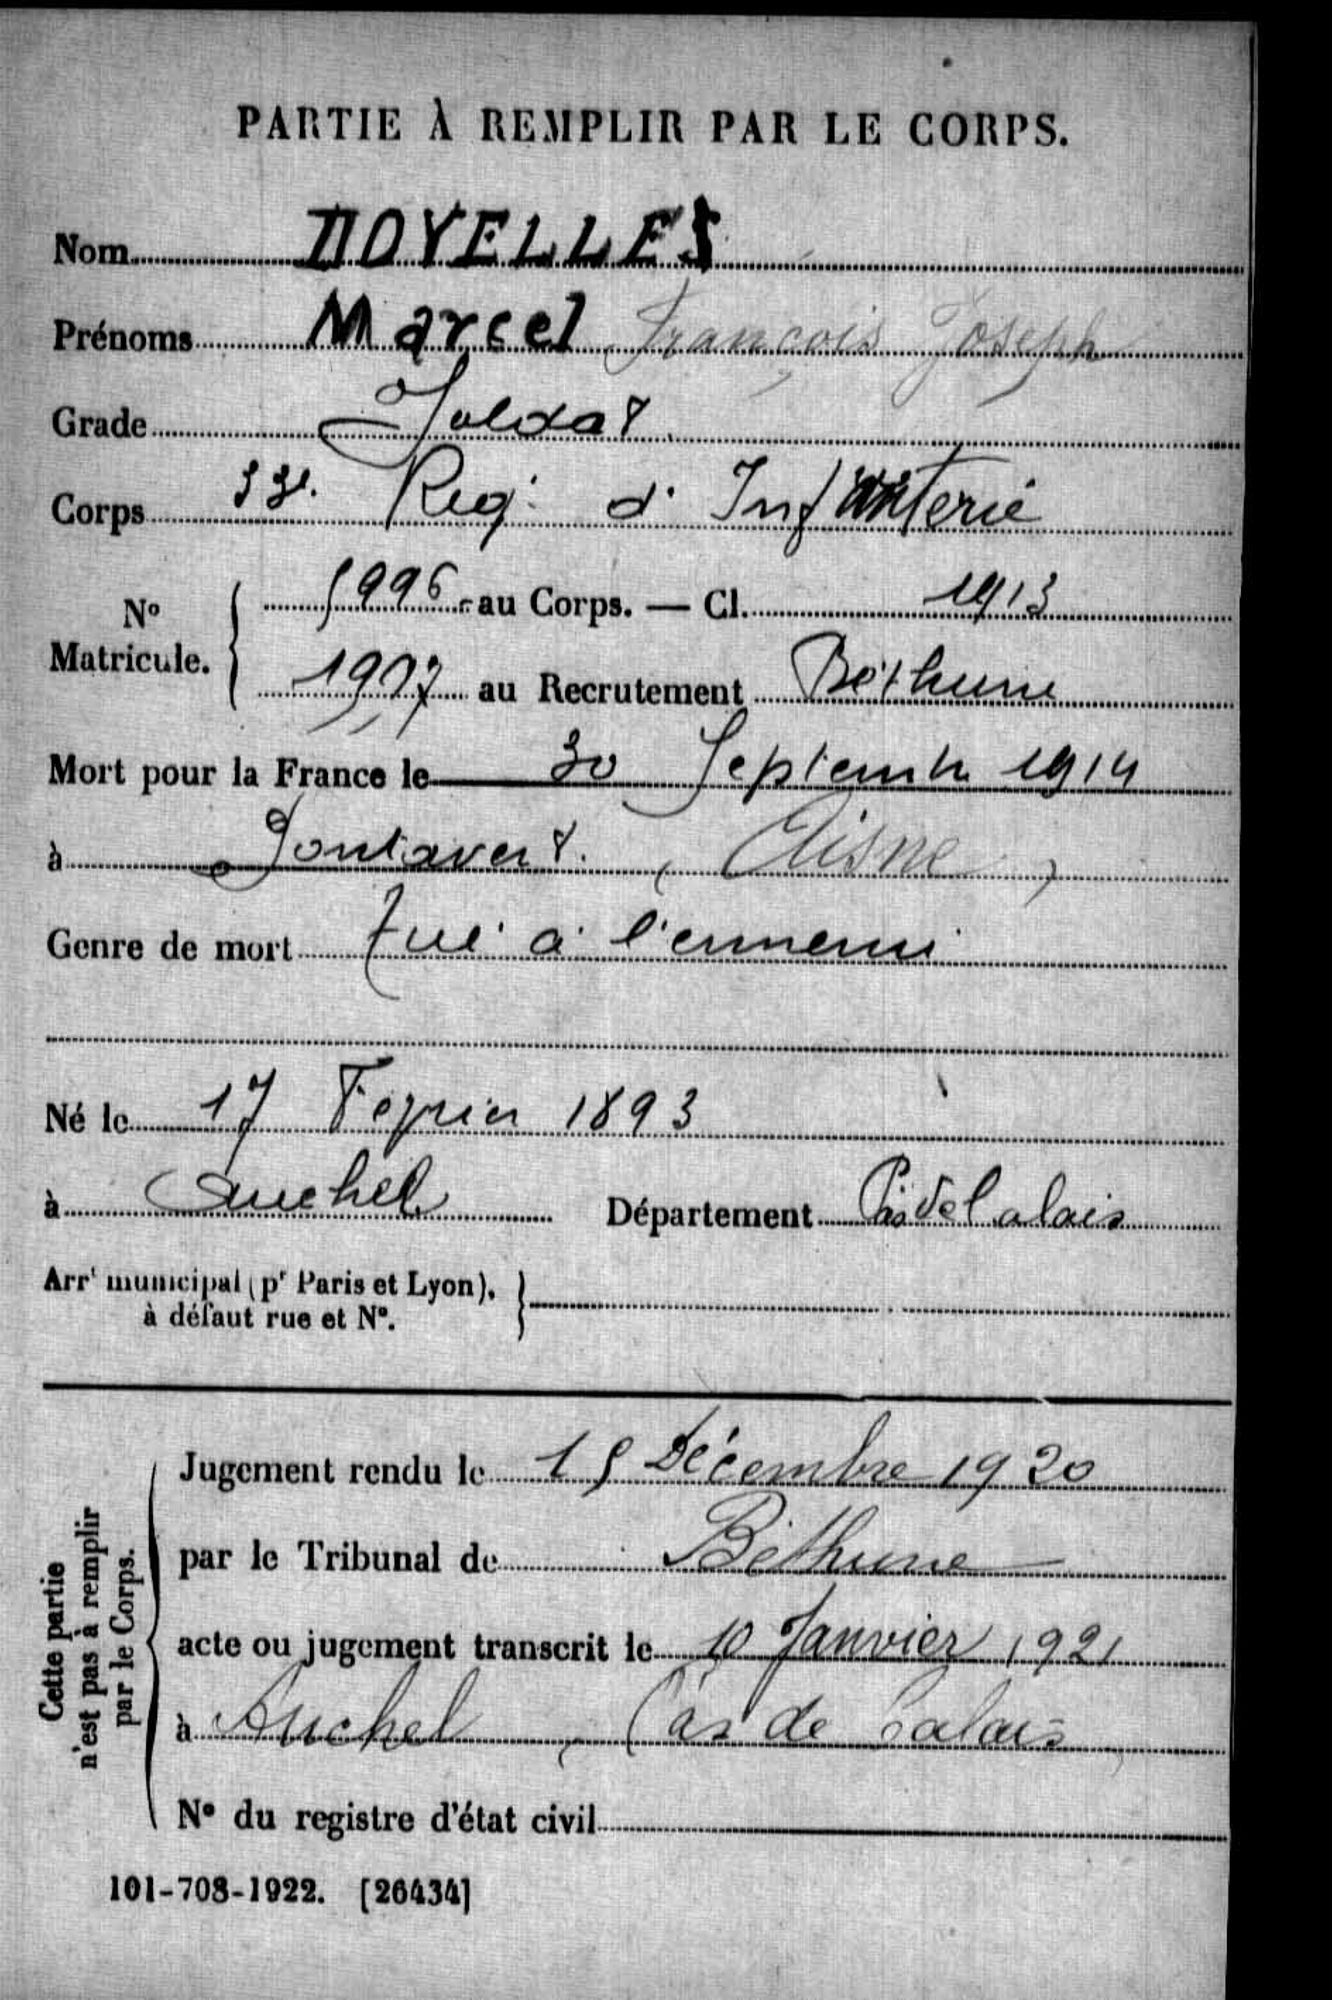 PARTIE À REMPLIR PAR LE CORPS.
Nom DOYELLES
Prénoms Marcel François Joseph
Grade Soldat
Corps 33e. Reg. d' Infanterie
N° Matricule. 5996 au Corps. — Cl. 1913
1997 au Recrutement Béthune
Mort pour la France le 30 Septembre 1914
à Pontavert. (Aisne)
Genre de mort Tué à l'ennemi
Né le 17 Fevrier 1893
à Auchel Département Pas de Calais
Arrt municipal (pr Paris et Lyon), à défaut rue et N°.
Cette partie n'est pas à remplir par le Corps.
Jugement rendu le 15 Décembre 1920
par le Tribunal de Béthune
acte ou jugement transcrit le 10 Janvier 1921
à Auchel (Pas de Calais)
N° du registre d'état civil
101-708-1922. [26434]